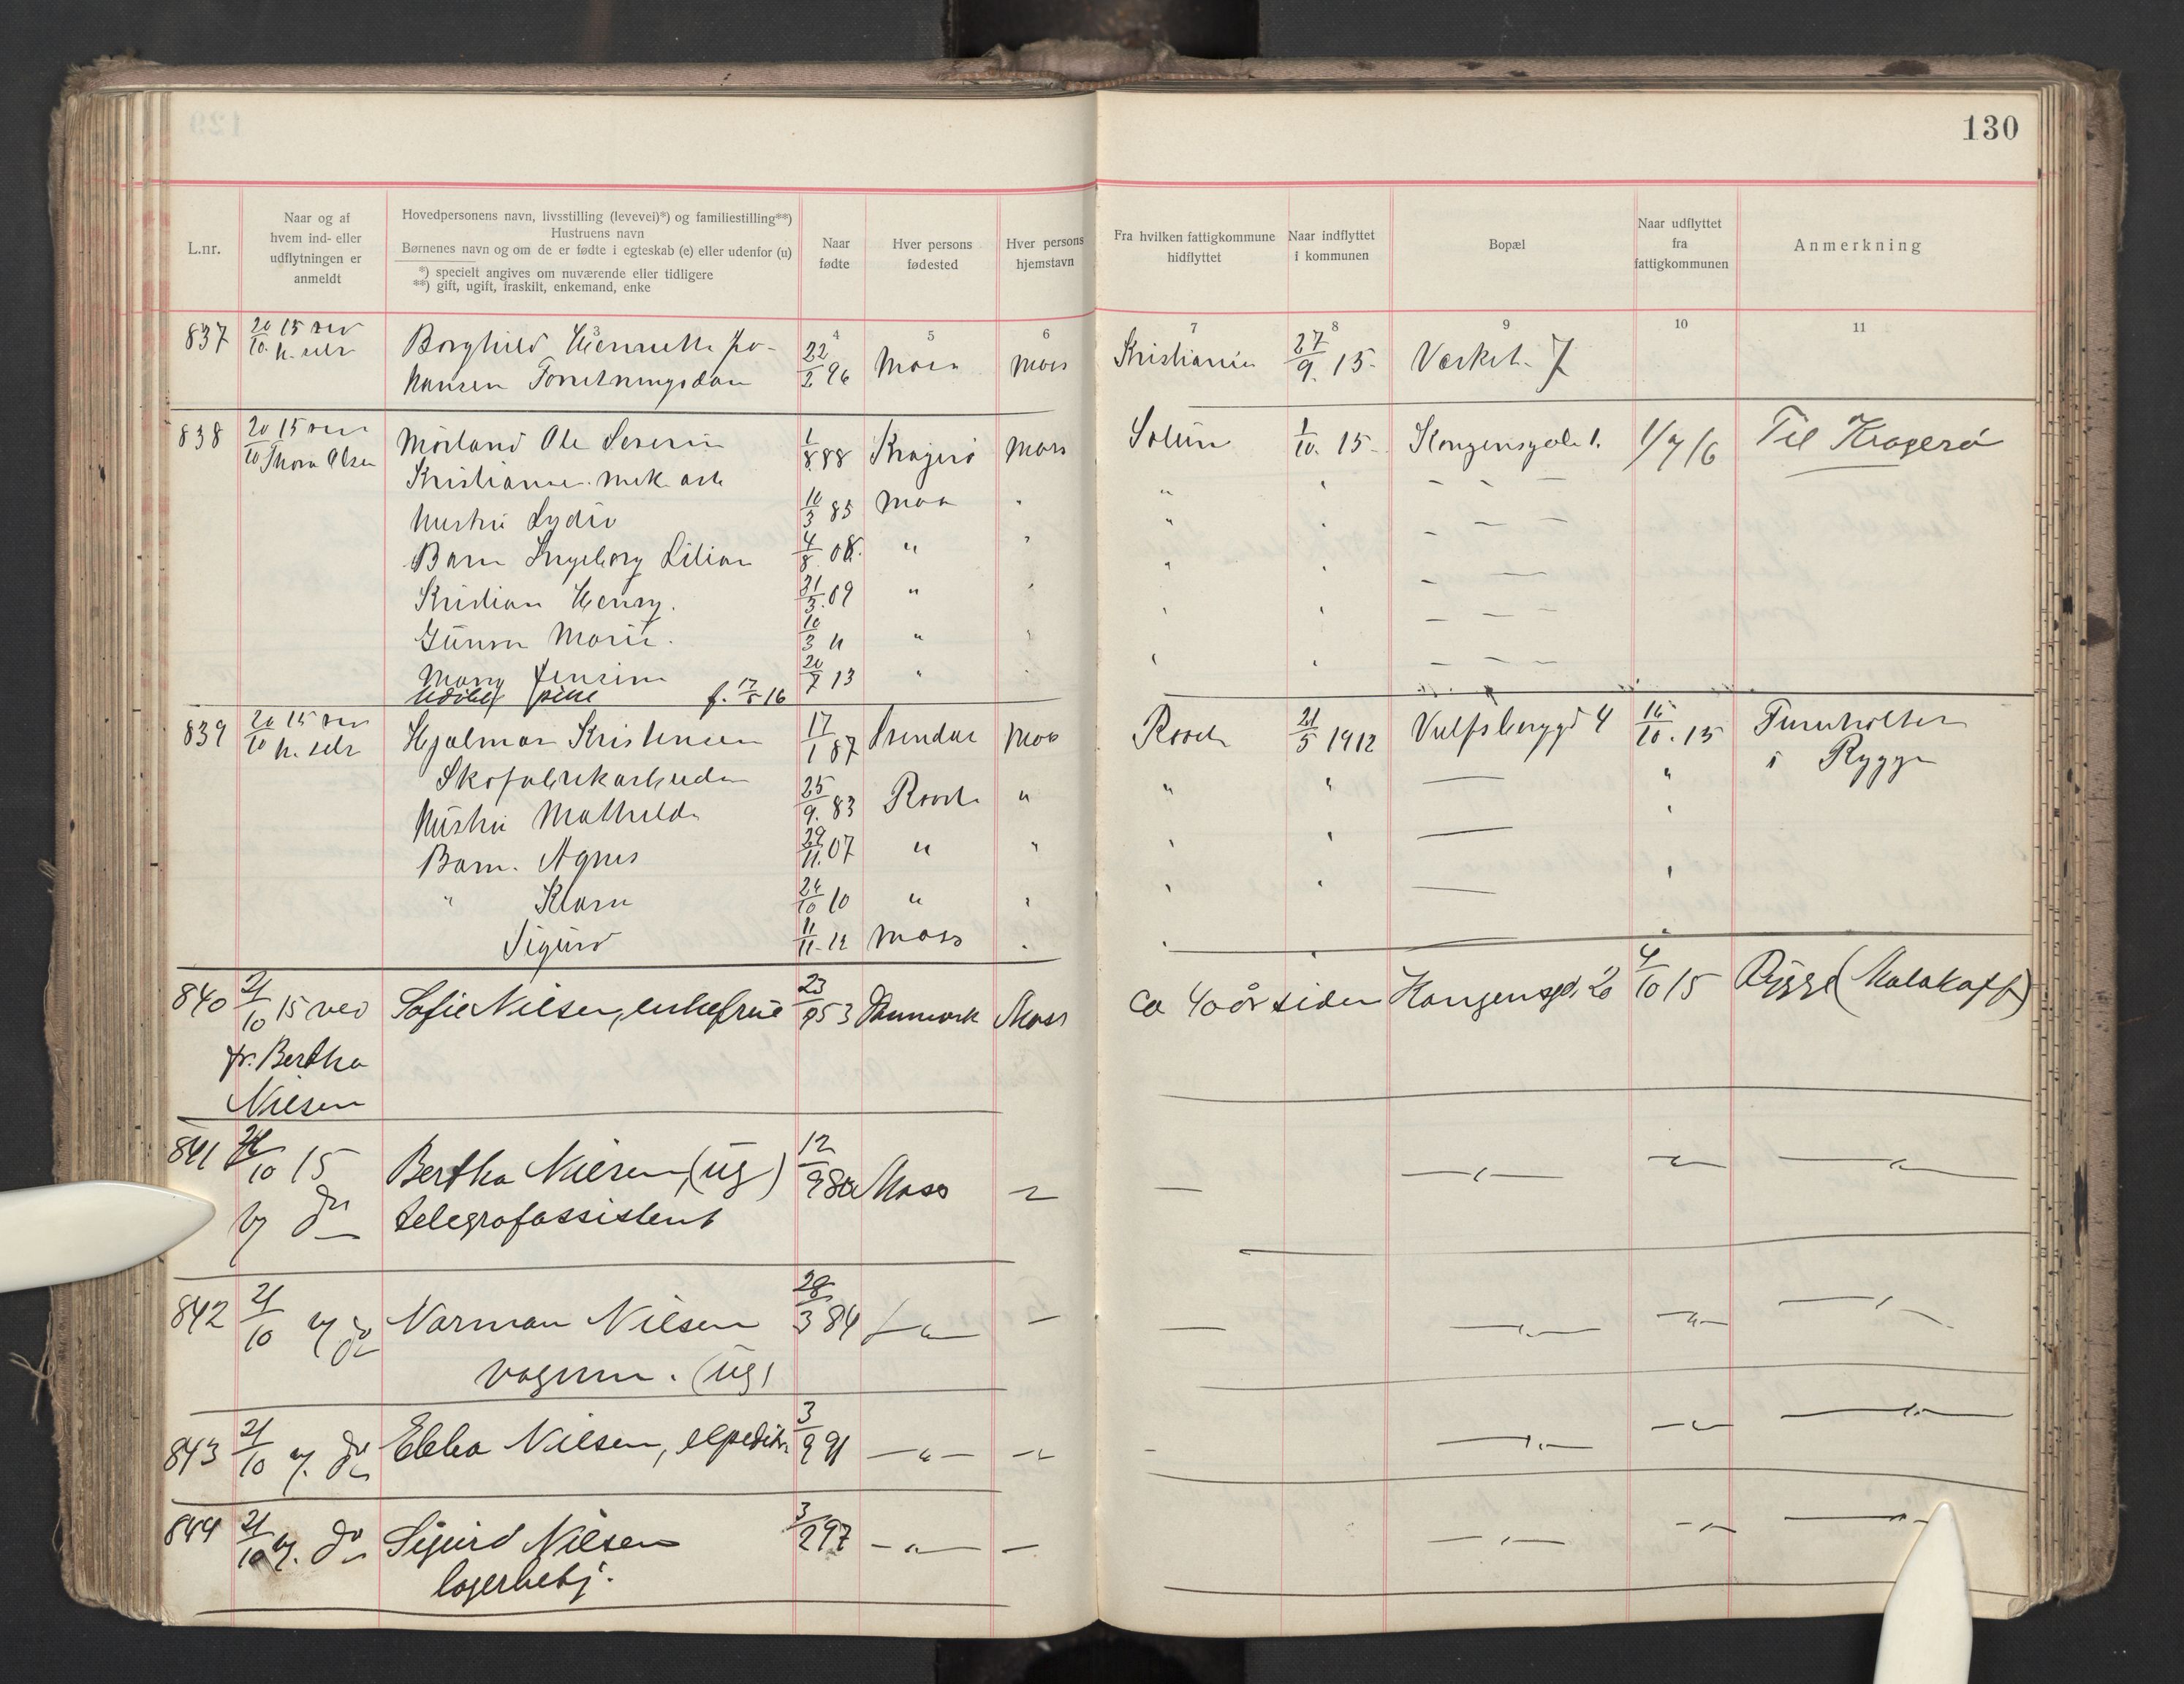 130
L.nr.
Naar og af
hvem ind- eller
udflytningen er
anmeldt
Hovedpersonens navn, livsstilling (levevei)*) og familiestilling**)
Hustruens navn
Børnenes navn og om de er fødte i egteskab (e) eller udenfor (u)
*) specielt angives om nuværende eller tidligere
**) gift, ugift, fraskilt, enkemand, enke
Naar
fødte
Hver persons
fødested
Hver persons
hjemstavn
Fra hvilken fattigkommune
hidflyttet
Naar indflyttet
i kommunen
Bopæl
Naar udflyttet
fra
fattigkommunen
Anmerkning
3 4 5 6 7 8 9 10 11
837 20/10 15 ved Borghild Henriette Jo- 22/2 96 Moss Moss Kristiania 27/9 15. Værket. 7
h. selv hansen Forretningsdam
838 20/10 15 ved Mørland Ole Severin 1/8 88 Kragerø Moss Solum 1/10. 15. Kongensgade 1. Til Kragerø
Thora Olsen Kristiansen. mek. arb
Hustru Lydia 10/3 85 Moss
Barn Ingeborg Lilian 4/8 08. "
Kristian Henry. 31/3. 09 "
Gunvor Marie. 10/3 11 "
Mary Jensine 20/7 13 "
f. 17/5 16
839 20/10 15 ved Hjalmar Kristensen 17/1 87 Moss Raade 21/5 1912 Vulfsberggd 4 16/10. 15 Furuholten
h. selv Skofabrikarbeider i Rygge
Hustru Mathilde 25/9. 83 Raade "
Barn. Agnes 29/11. 07 " "
" Klara 24/10 10 "
Sigurd 11/11. 12 Moss
840 21/10 15 ved Sofie Nilsen, enkefrue 23/9 53 Danmark Moss ca 40 år siden Kongensgd. 20 4/10 15 Rygge (Malakoff)
fr. Bertha
Nilsen
841 21/10 15 Bertha Nilsen, (ug) 12/9 80 Moss — " —
telegrafassistent
842 21/10 Norman Nilsen 28/3 84 — " —
vognm. (ug)
843 21/10 Ebba Nilsen, expeditr. 3/9 91 — " — — " —
844 21/10 Sigurd Nilsen 3/2 97 — " — —
lagerbetj.